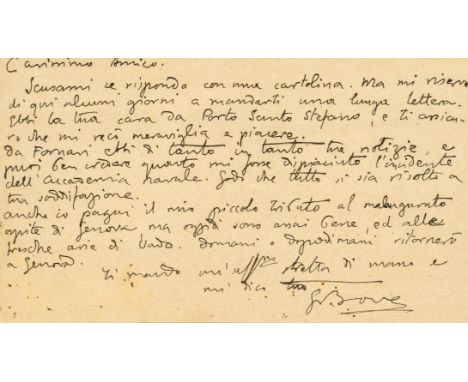 Carissimo Amico.
Scusami se rispondo con una cartolina. Ma mi riservo
di qui alcuni giorni a mandarti una lunga lettera.
Ebbi la tua cara da Porto Santo Stefano, e ti assicu-
ro che mi recò meraviglia e piacere.
da Fornari ebbi di tanto in tanto tue notizie, e
puoi ben credere quanto mi fosse dispiaciuto l'incidente
dell'Accademia navale. Godo che tutto si sia risolto a
tua soddisfazione.
anche io pagai il mio piccolo tributo al malaugurato
ospite di Genova ma oggidì sono assai bene, ed alle
fresche arie di Vado. domani o dopodimani ritornerò
a Genova.
ti mando un'aff.ma stretta di mano e
mi dico tuo
G. Bove